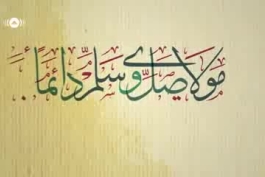 مَوْلَايَ صَلِّ وَسَلِّمْ دَائِمًا..